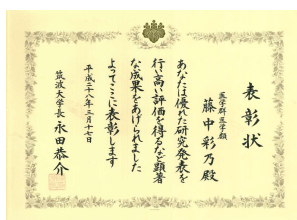 表彰状
医学群医学類
藤中彩乃殿
あなたは優れた研究発表を
行い高い評価を得るなど顕著
な成果をあげられました
よってここに表彰します
平成二十八年三月十七日
筑波大学長 永田恭介